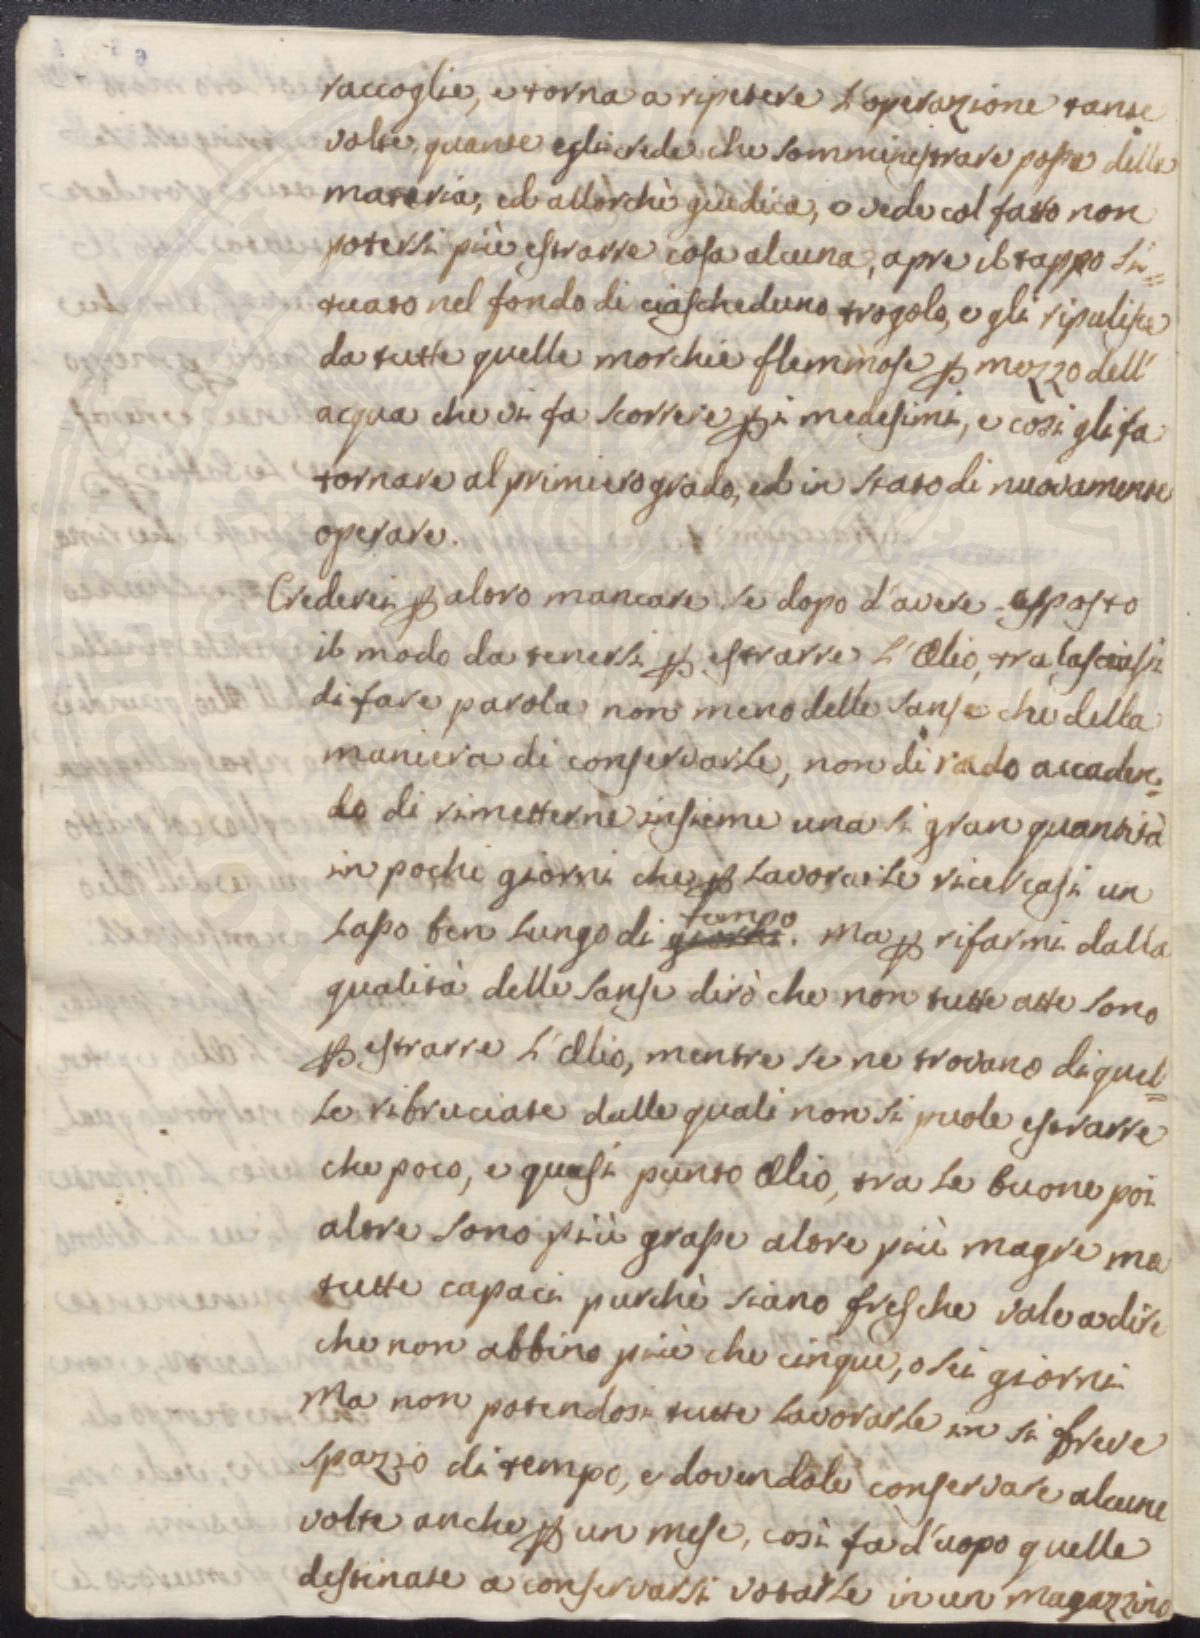 raccoglie, e torna a ripetere l'operazione tante
volte, quante egli crede che somministrare possa della
materia, ed allorchè giudica, o vede col fatto non
potersi più estrarre cosa alcuna, apre il tappo si=
tuato nel fondo di ciascheduno trogolo, e gli ripulisce
da tutte quelle morchie flemmose ꝑ mezzo dell'
acqua che vi fa scorrere ꝑ i medesimi, e così gli fa
tornare al primiero grado, ed in stato di nuovamente
operare.
Crederei ꝑ altro mancare se dopo d'avere esposto
il modo da tenersi ꝑ estrarre l'Olio, tralasciassi
di fare parola non meno delle Sanse che della
maniera di conservarle, non di rado accaden=
do di rimetterne insieme una si gran quantità
in pochi giorni che ꝑ lavorarle ricercasi un
lasso ben lungo di giorni tempo. Ma ꝑ rifarmi dalla
qualità delle Sanse dirò che non tutte atte sono
ꝑ estrarre l'Olio, mentre se ne trovano di quel=
le ribruciate dalle quali non si puole estrarre
che poco, e quasi punto Olio, tra le buone poi
altre sono più grasse altre più magre ma
tutte capaci purchè siano fresche vale a dire
che non abbino più che cinque, o sei giorni
Ma non potendosi tutte lavorarle in si breve
spazio di tempo, e dovendole conservare alcune
volte anche ꝑ un mese, così fa d'uopo quelle
destinate a conservarsi votarle in un Magazzino